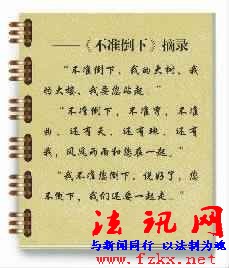 ——《不准倒下》摘录
“不准倒下，我的大树、我
的大楼、我要您站起。”
“不准倒下，不准弯，不准
曲。还有天、还有地、还有
我，风风雨雨和您在一起。”
“我不准您倒下，说好了，您
不倒下，我们还要一起走。”
法讯网
与新闻同行 以法制为魂
www.fzkx.net